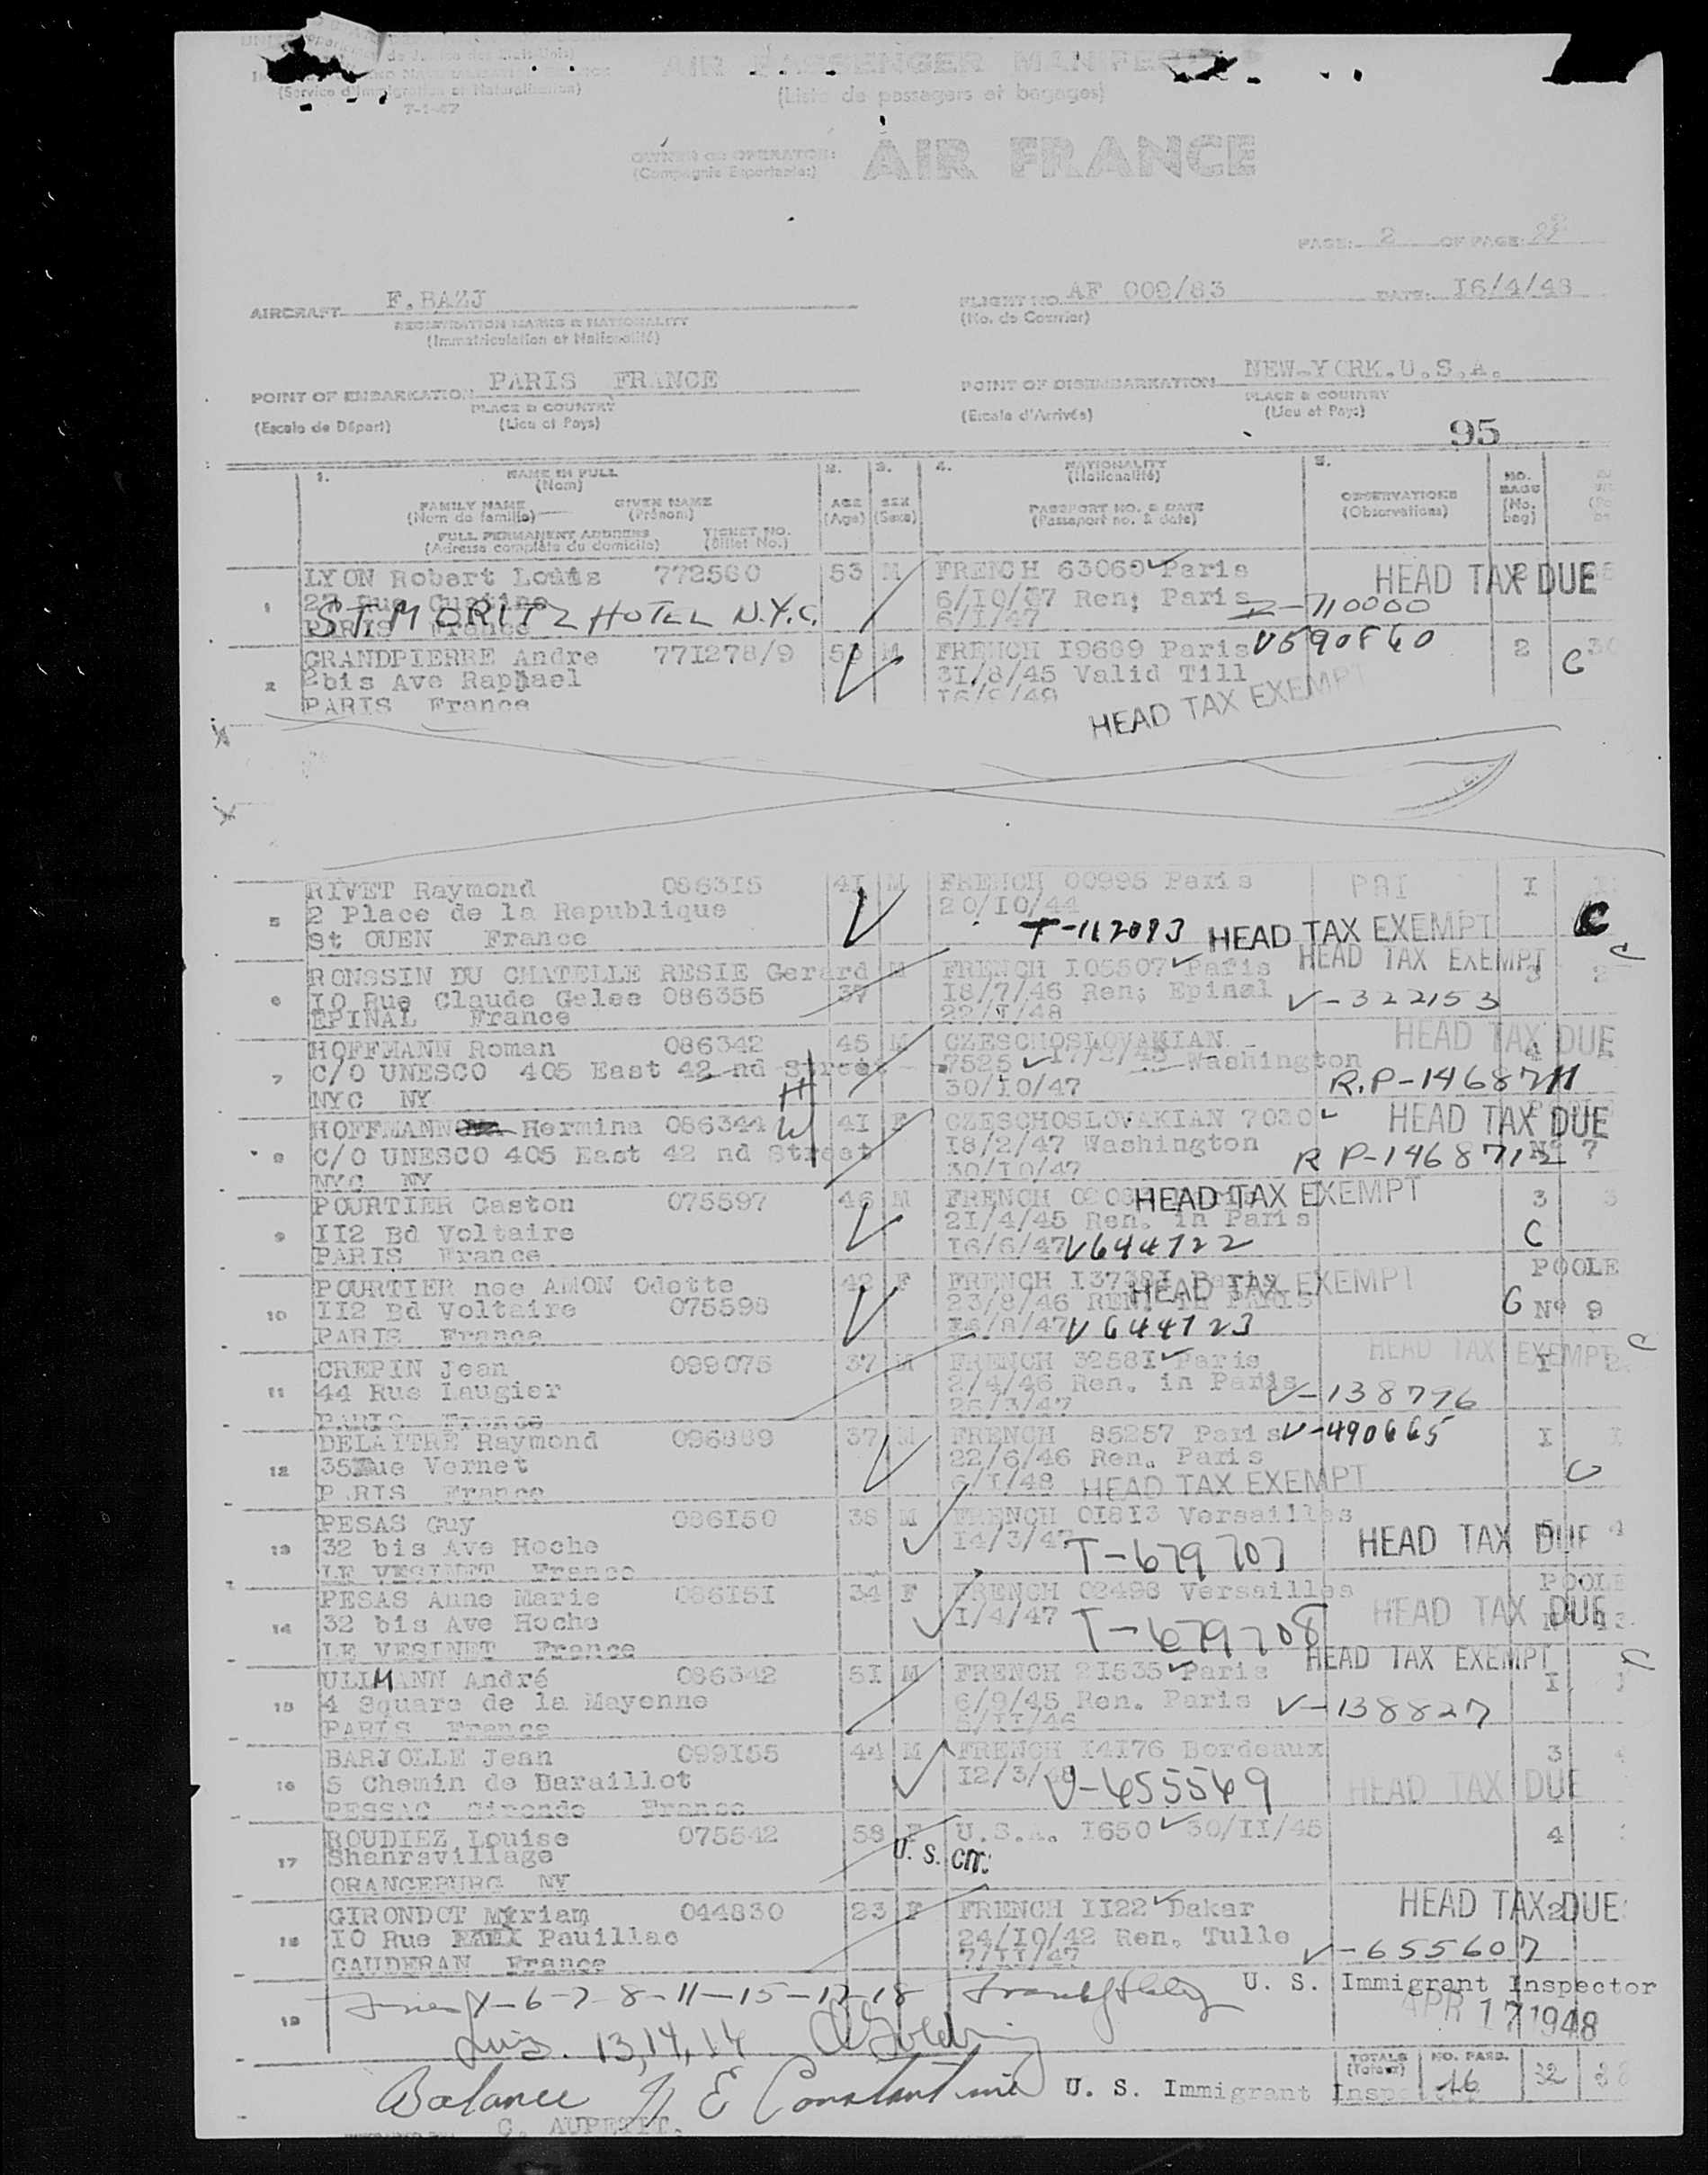 AIR PASSENGER MANIFEST
(Service d'Immigration et Naturalisation)
(Liste de passagers et bagages)
7-1-47
OWNER OR OPERATOR: AIR FRANCE
(Compagnie Exportante:)
PAGE: 2 OF PAGE:
AIRCRAFT F.BAZJ
REGISTRATION MARKS & NATIONALITY
(Immatriculation et Nationalité)
FLIGHT NO. AF 009/83 DATE: I6/4/48
(No. de Courrier)
POINT OF EMBARKATION PARIS FRANCE
PLACE & COUNTRY
(Escale de Départ) (Lieu et Pays)
POINT OF DISEMBARKATION NEW-YORK.U.S.A.
PLACE & COUNTRY
(Escale d'Arrivée) (Lieu et Pays)
95
1. NAME IN FULL 2. 3. 4. NATIONALITY 5.
(Nom) (Nationalité)
FAMILY NAME GIVEN NAME AGE SEX PASSPORT NO. & DATE OBSERVATIONS NO. BAGS
(Nom de famille) (Prénom) (Age) (Sexe) (Passeport no. & date) (Observations) (No. bag)
FULL PERMANENT ADDRESS TICKET NO.
(Adresse complète du domicile) (Billet No.)
LYON Robert Louis 772560 53 M FRENCH 63060 Paris HEAD TAX DUE
1 27 Rue 6/I0/37 Ren; Paris 710000
ST. MORITZ HOTEL N.Y.C.
PARIS France 6/I/47
GRANDPIERRE Andre 77I278/9 M FRENCH I9689 Paris V590860 2 C
2 2bis Ave Raphael 3I/8/45 Valid Till
PARIS France HEAD TAX EXEMPT
RIVET Raymond 0863I5 4I M FRENCH 00995 Paris I
5 2 Place de la Republique 20/I0/44 C
St OUEN France T-112093 HEAD TAX EXEMPT
RONSSIN DU CHATELLE RESIE Gerard M FRENCH I05507 Paris HEAD TAX EXEMPT C
6 I0 Rue Claude Gelee 086355 37 I8/7/46 Ren; Epinal 3
EPINAL France 22/I/48 V-322153
HOFFMANN Roman 086342 45 M CZESCHOSLOVAKIAN HEAD TAX DUE
7 C/O UNESCO 405 East 42 nd Street 7525 Washington 4
NYC NY H 30/I0/47 R.P-1468711
HOFFMANN Hermina 086344 W 4I F CZESCHOSLOVAKIAN 7030 HEAD TAX DUE
8 C/O UNESCO 405 East 42 nd Street I8/2/47 Washington Nº 7
NYC NY 30/I0/47 R P-1468712
POURTIER Gaston 075597 46 M FRENCH HEAD TAX EXEMPT 3
9 II2 Bd Voltaire 2I/4/45 Ren. in Paris
PARIS France I6/6/47 V644722 C
POURTIER nee AMON Odette 42 F FRENCH I3738I Paris HEAD TAX EXEMPT POOLE
10 II2 Bd Voltaire 075598 23/8/46 REN. in PARIS C Nº 9
PARIS France V644723
CREPIN Jean 099076 37 M FRENCH 3258I Paris HEAD TAX EXEMPT C
11 44 Rue Laugier 2/4/46 Ren. in Paris I
PARIS France 25/3/47 V-138796
DELAITRE Raymond 096889 37 M FRENCH 85257 Paris V-490665 I
12 35 Rue Vernet 22/6/46 Ren. Paris C
PARIS France 6/I/48 HEAD TAX EXEMPT
PESAS Guy 086I50 38 M FRENCH 0I8I3 Versailles
13 32 bis Ave Hoche I4/3/47 HEAD TAX DUE 4
LE VESINET France T-679707
PESAS Anne Marie 086I5I 34 F FRENCH 02498 Versailles POOLE
14 32 bis Ave Hoche I/4/47 T-679708 HEAD TAX DUE
LE VESINET France
ULLMANN André 086342 5I M FRENCH 2I535 Paris HEAD TAX EXEMPT C
15 4 Square de la Mayenne 6/9/45 Ren. Paris I
PARIS France 6/II/46 V-138827
BARJOLLE Jean 099I55 44 M FRENCH I4I76 Bordeaux 3
16 5 Chemin de Baraillot I2/3/48 HEAD TAX DUE
PESSAC Gironde France V-655569
ROUDIEZ Louise 075542 58 F U.S.A. I650 30/II/45 4
17 Shanravillage U. S. CIT.
ORANGEBURG NY
GIRONDOT Myriam 044830 23 F FRENCH II22 Dakar HEAD TAX DUE 2
18 I0 Rue Pauillac 24/I0/42 Ren. Tulle
CAUDERAN France 7/II/47 V-655607
X-6-7-8-11-15-17-18 U. S. Immigrant Inspector
19 APR 17 1948
13,14,14
TOTALS (Totaux) NO. PASS. 16 32
Balance N E Constantine U. S. Immigrant Inspector
C. AUPETIT.